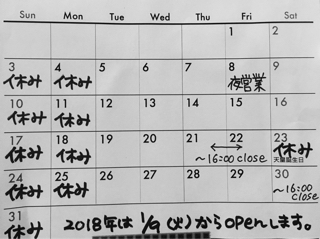 Sun Mon Tue Wed Thu Fri Sat
1 2
3 4 5 6 7 8 9
休み 休み 夜営業
10 11 12 13 14 15 16
休み 休み
17 18 19 20 21 ↔ 22 23
休み 休み 〜16:00 close 休み
天皇誕生日
24 25 26 27 28 29 30
休み 休み 〜16:00 close
31
休み 2018年は 1/9(火)からOPENします。